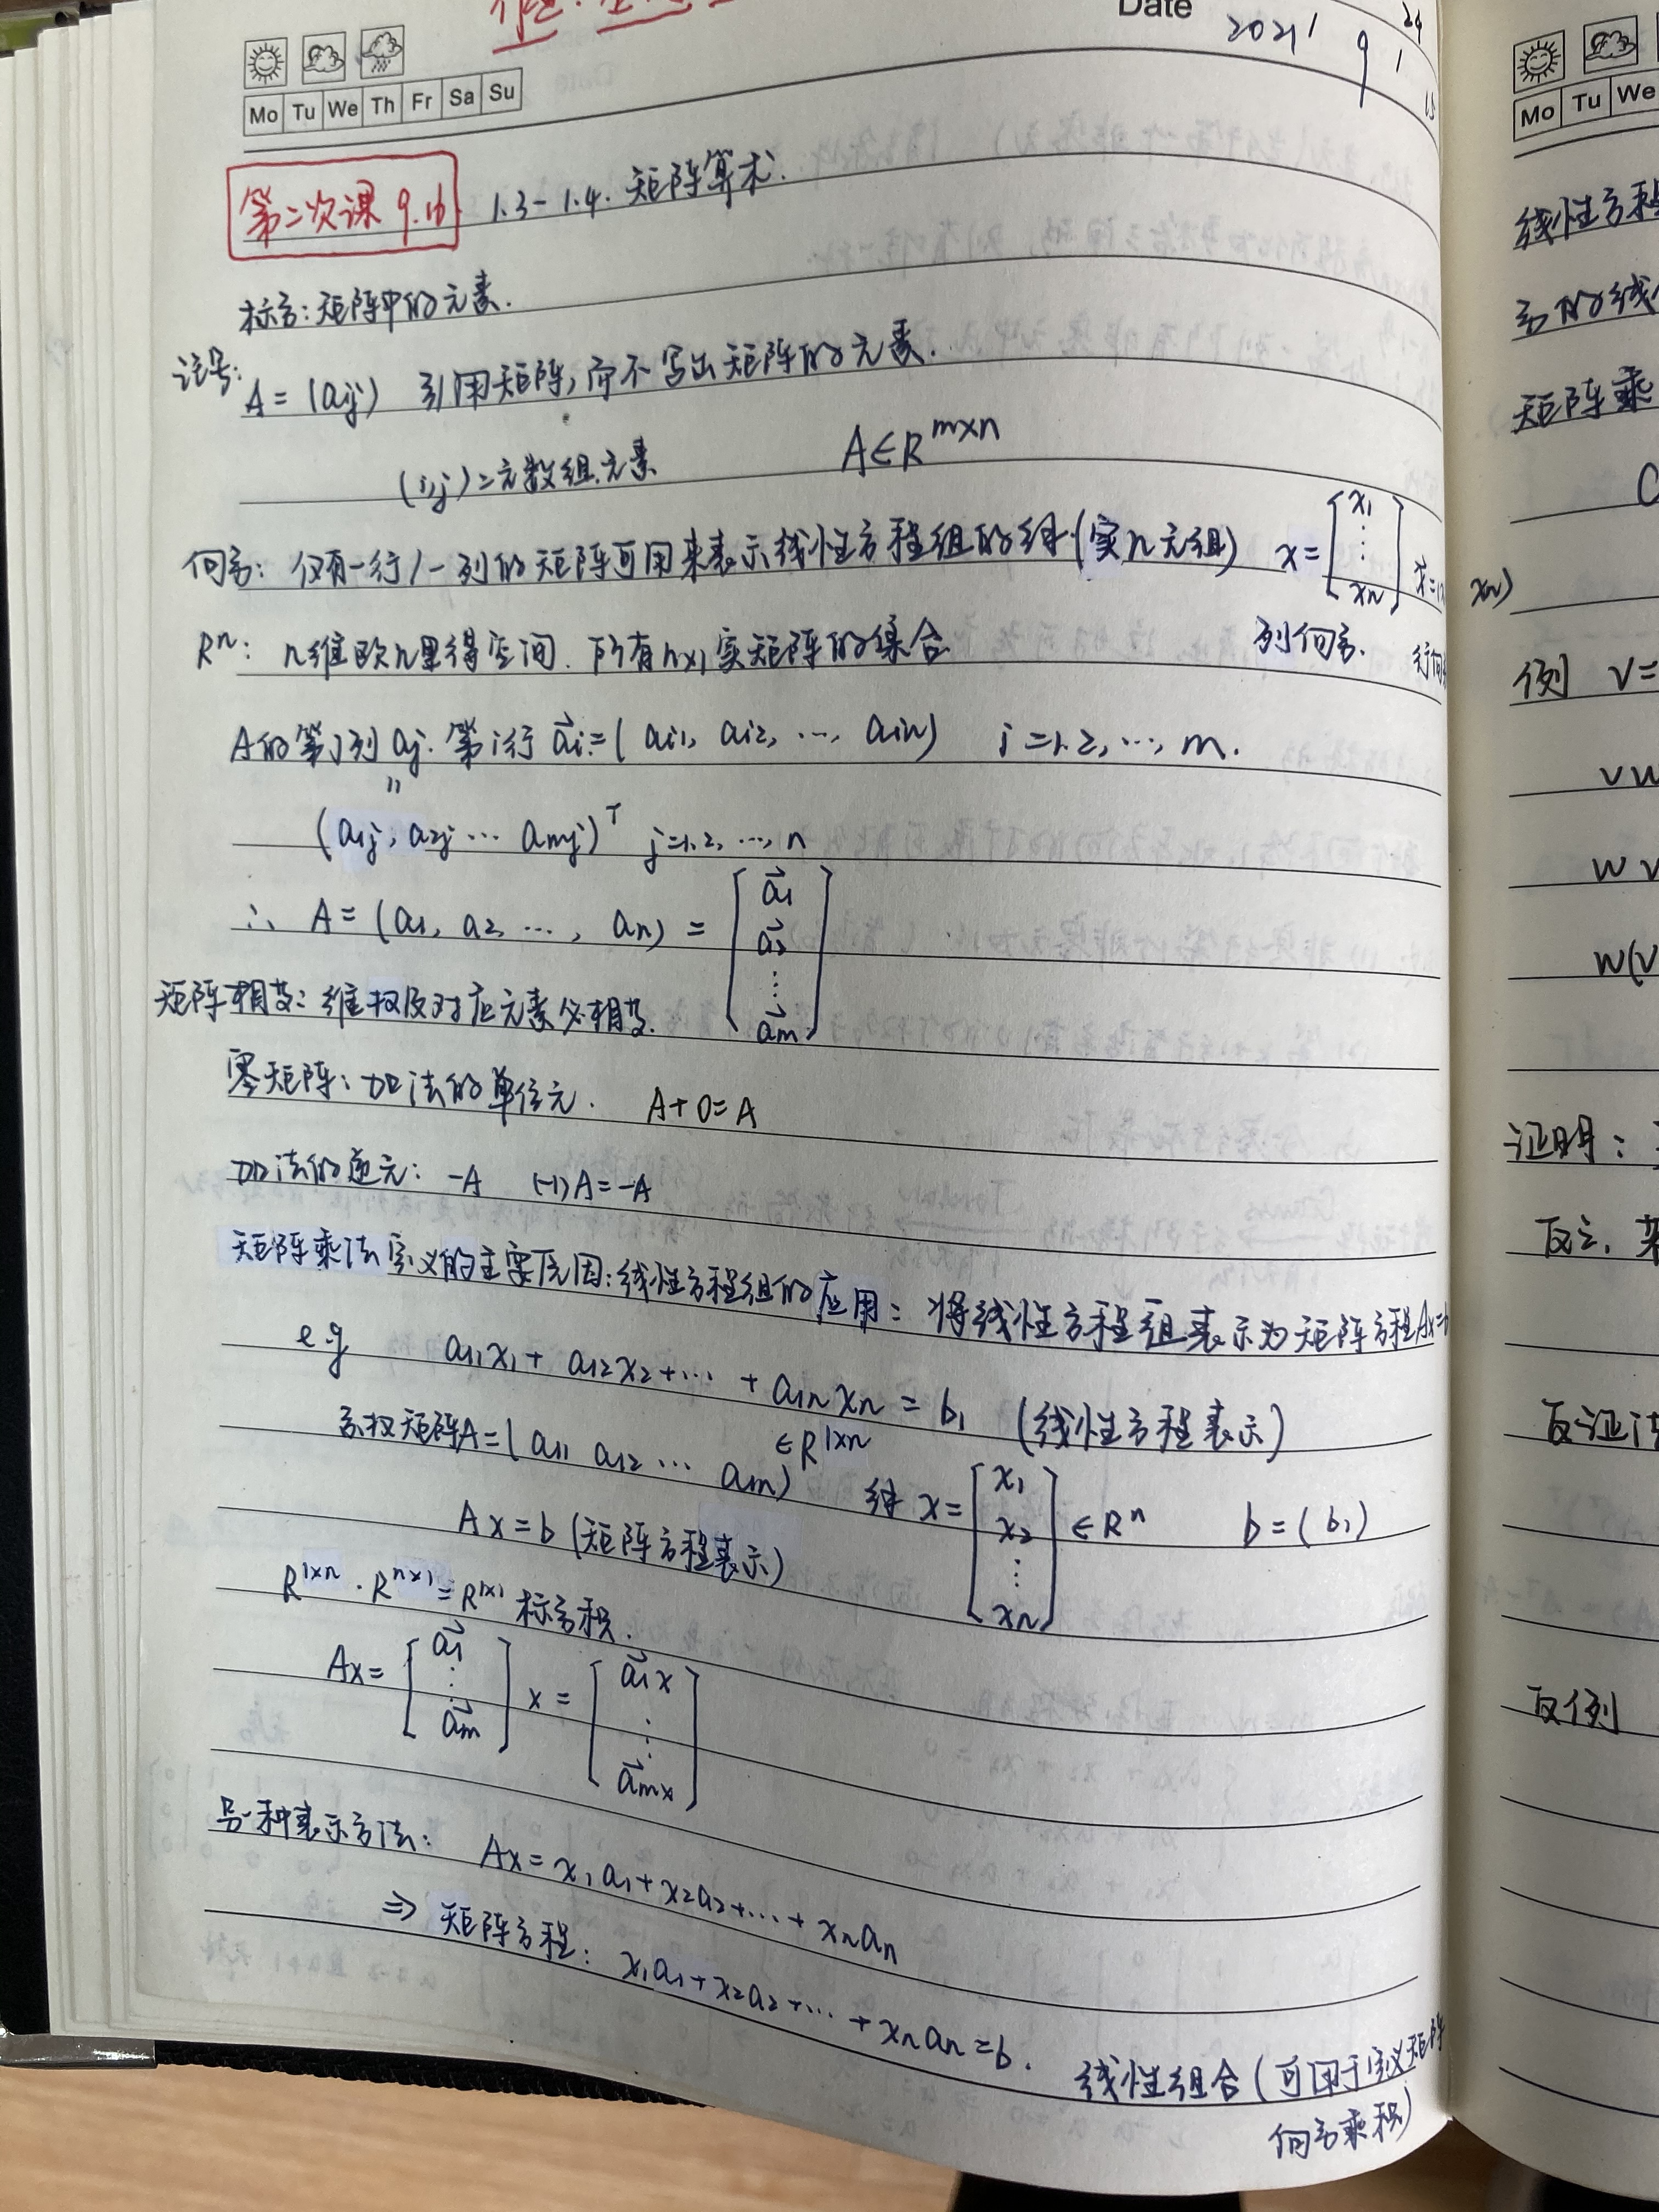 Date 2021 9 1
Mo Tu We Th Fr Sa Su
第二次课 9.16. 1.3-1.4. 矩阵算术.
标量:矩阵中的元素.
记号: A = (aij) 引用矩阵,而不写出矩阵的元素.
(i,j)二元数组元素 A∈R^{m×n}
向量: 仅有一行/一列的矩阵可用来表示线性方程组的解(实n元组) x = [x1 ⋮ xn]
列向量.
R^n: n维欧几里得空间. 所有n×1实矩阵的集合
A的第j列 aj. 第i行 a⃗i = (ai1, ai2, ..., ain) i=1.2, ..., m.
"
(a1j, a2j ... amj)^T j=1.2, ..., n
∴ A = (a1, a2, ..., an) = [a⃗1 a⃗2 ⋮ a⃗m]
矩阵相等: 维数及对应元素必相等.
零矩阵: 加法的单位元. A+0=A
加法的逆元: -A (-1)A=-A
矩阵乘法定义的主要原因:线性方程组的应用: 将线性方程组表示为矩阵方程Ax=b
e.g a11x1 + a12x2 + ... + a1nxn = b1 (线性方程表示)
系数矩阵A=(a11 a12 ... a1n) ∈R^{1×n} 解 x = [x1 x2 ⋮ xn] ∈R^n b=(b1)
Ax=b (矩阵方程表示)
R^{1×n} · R^{n×1} = R^{1×1} 标量积.
Ax = [a⃗1 ⋮ a⃗m] x = [a⃗1x ⋮ a⃗mx]
另一种表示方法: Ax = x1a1 + x2a2 + ... + xnan
⇒ 矩阵方程: x1a1 + x2a2 + ... + xnan = b. 线性组合(可用于定义矩阵
向量乘积)
Mo Tu We
线性方程
矩阵乘
例 V=
证明:
反之,
反证法
反例